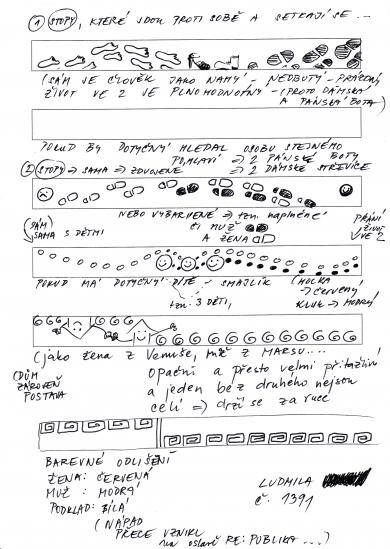 ① STOPY, KTERÉ JDOU PROTI SOBĚ A SETKAJÍ SE ...
(SÁM JE ČLOVĚK JAKO NAHÝ - NEDBUTÝ - PRÁZDNÝ,
ŽIVOT VE 2 JE PLNOHODNOTNÝ - (PROTO DÁMSKÁ
A PÁNSKÁ BOTA)
POKUD BY DOTYČNÝ HLEDAL OSOBU STEJNÉHO
POHLAVÍ ⇒ 2 PÁNSKÉ BOTY
② STOPY ⇒ SAMA ⇒ ZDVOJENÉ ⇒ 2 DÁMSKÉ STŘEVÍCE
NEBO VYBARVENÉ ⇒ tzn. naplněné
(SÁM)
SAMA S DĚTMI
či MUŽ
A ŽENA
PŘÁNÍ
ŽIVOT
VE 2
POKUD MÁ DOTYČNÝ DÍTĚ - SMAJLÍK (HOLKA
→ ČERVENÝ
tzn. 3 DĚTI,
KLUK → MODRÝ
(jako žena z Venuše, muž z MARSU....
(DŮM
ZÁROVEŇ
POSTAVA
Opační a přesto velmi přitažliví
a jeden bez druhého nejsou
celí ⇒ drží se za ruce
BAREVNÉ ODLIŠENÍ
ŽENA: ČERVENÁ
MUŽ: MODRÝ
PODKLAD: BÍLÁ
(NÁPAD
PŘECE VZNIKL
na oslavě RE:PUBLIKA ...)
LUDMILA
č. 1391